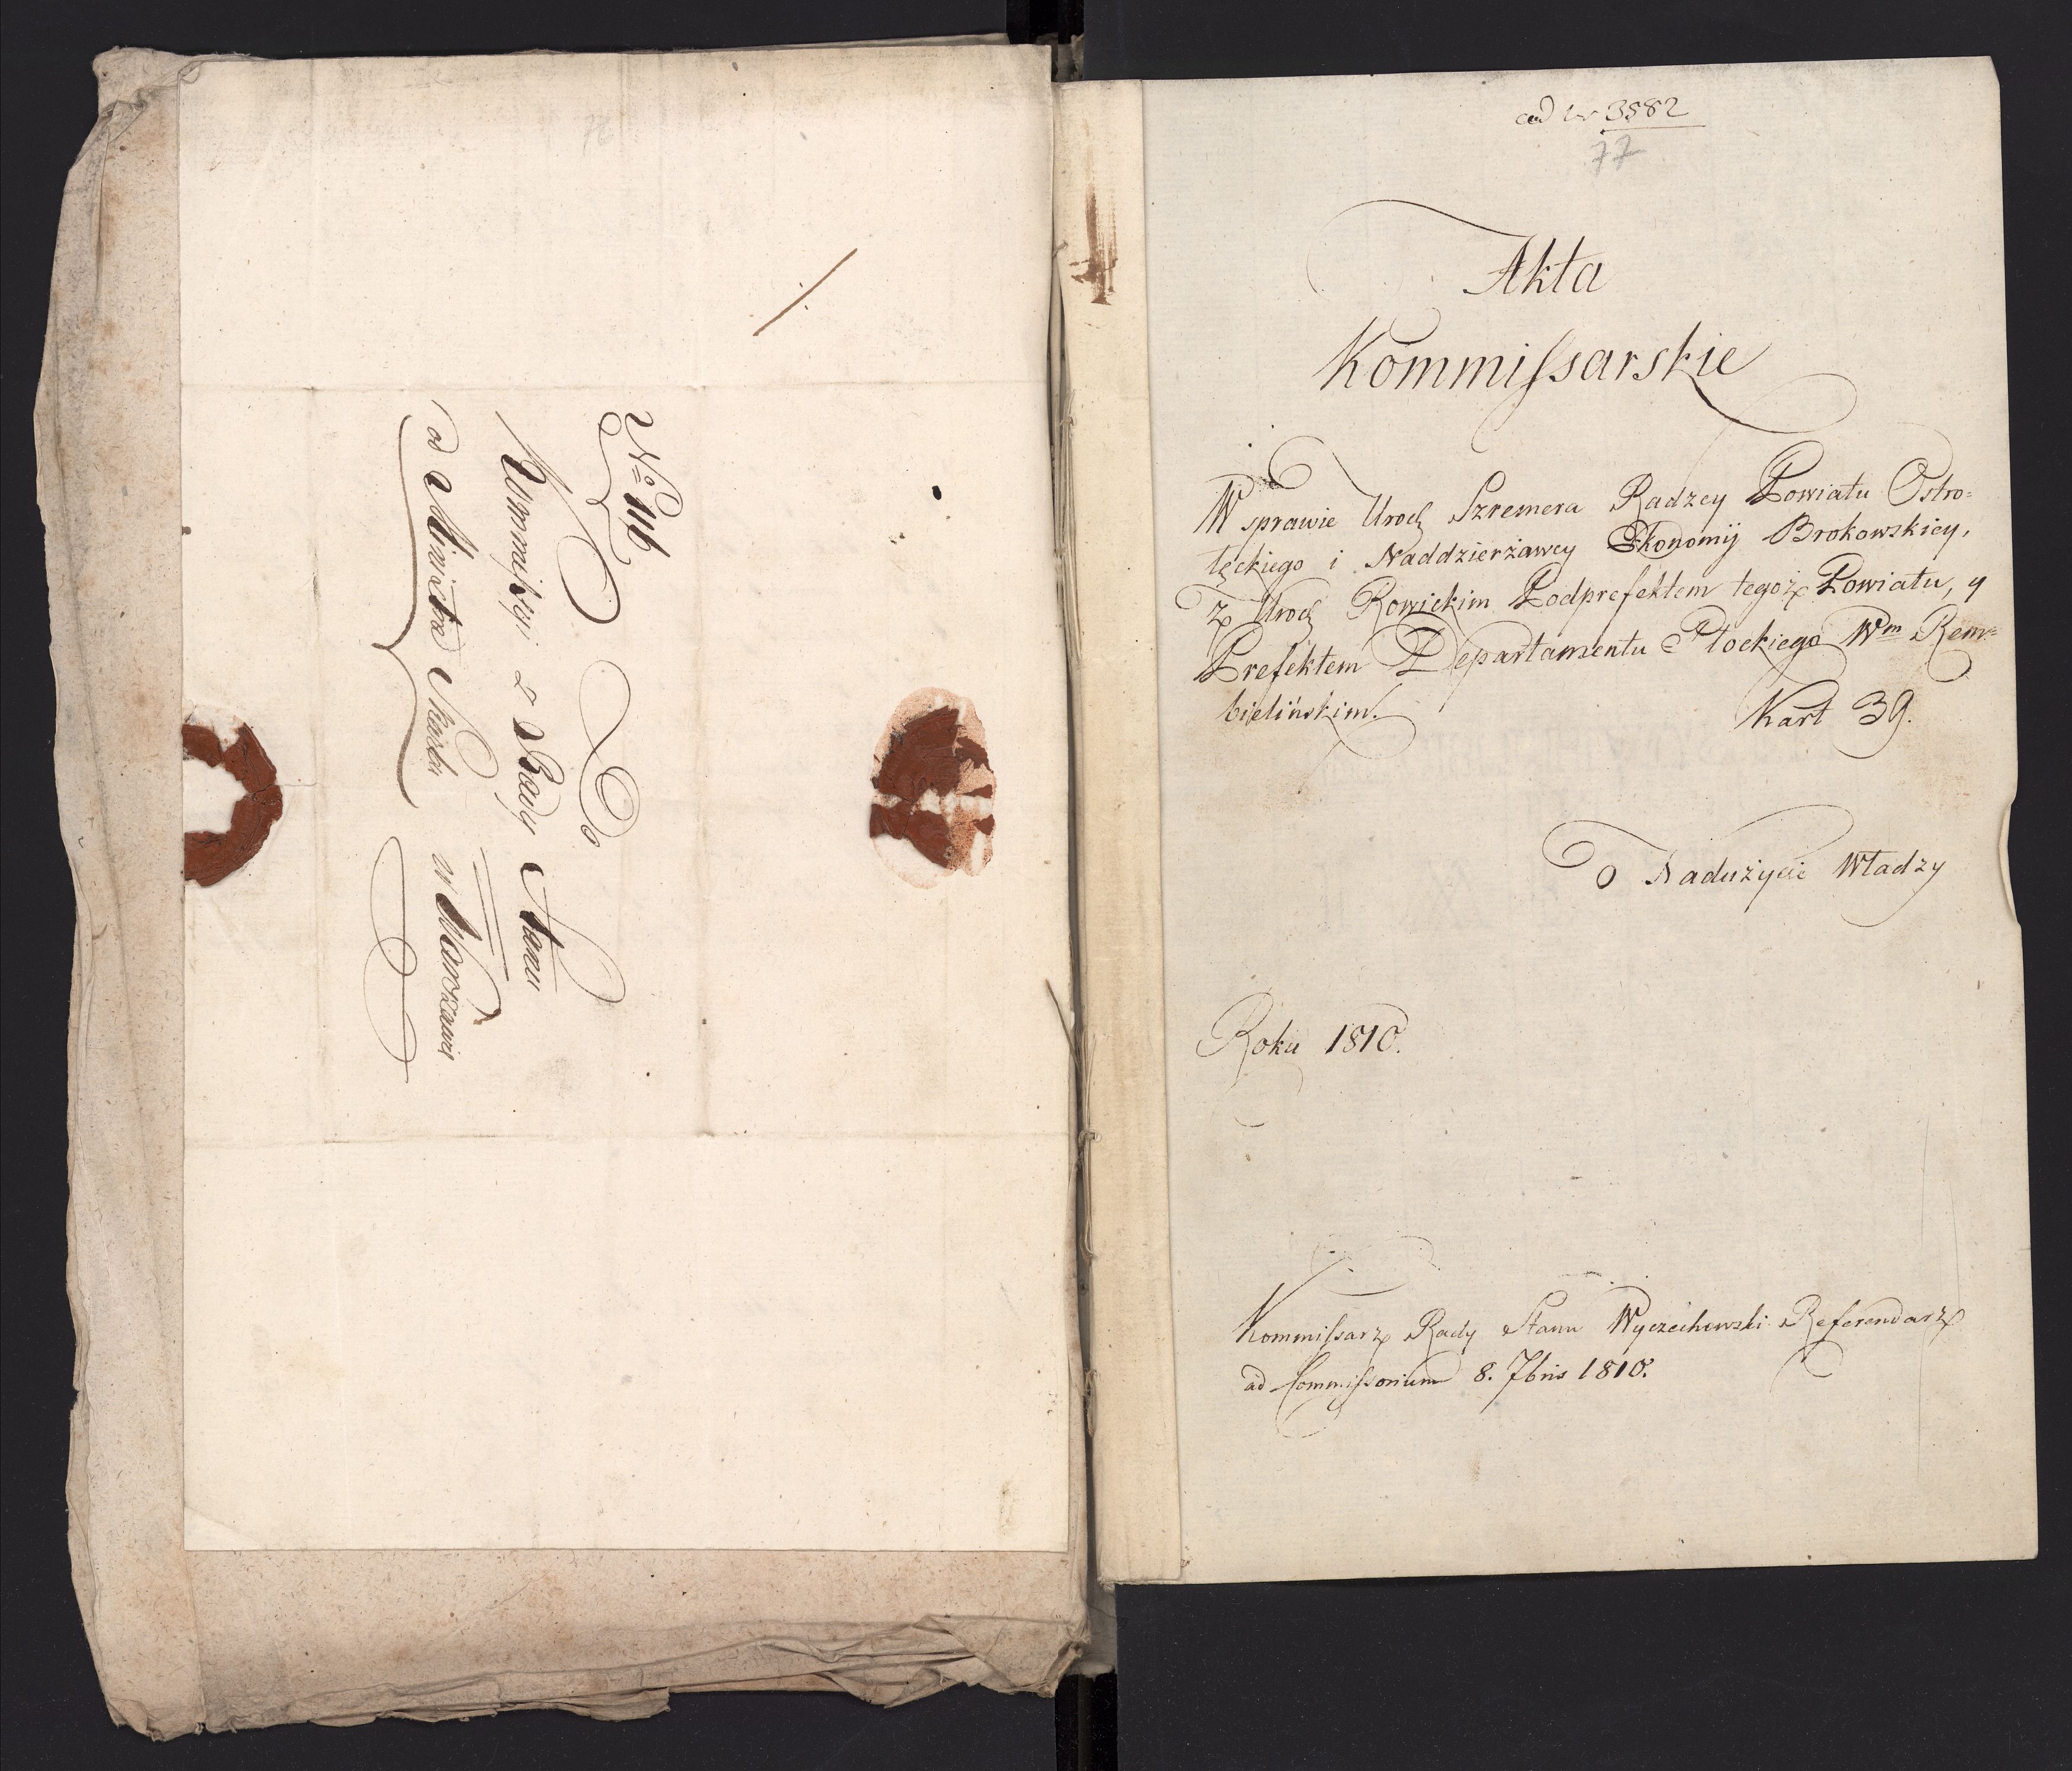 No 116
Do
Kommissyi z Rady Stanu
od Ministra Skarbu
w Warszawie
ad Nr 3582
77
Akta
Kommissarskie
W sprawie Urodz Szremera Radzcy Powiatu Ostro=
łęckiego i Naddzierżawcy Ekonomij Brokowskiey,
z Urodz Rowickim Podprefektem tegoż Powiatu, y
Prefektem Departamentu Płockiego Wm Rem=
bielińskim.
Kart 39.
o Nadużycie Władzy
Roku 1810.
Kommissarz Rady Stanu Wyczechowski Referendarz
ad Commissorium 8. 7bris 1810.